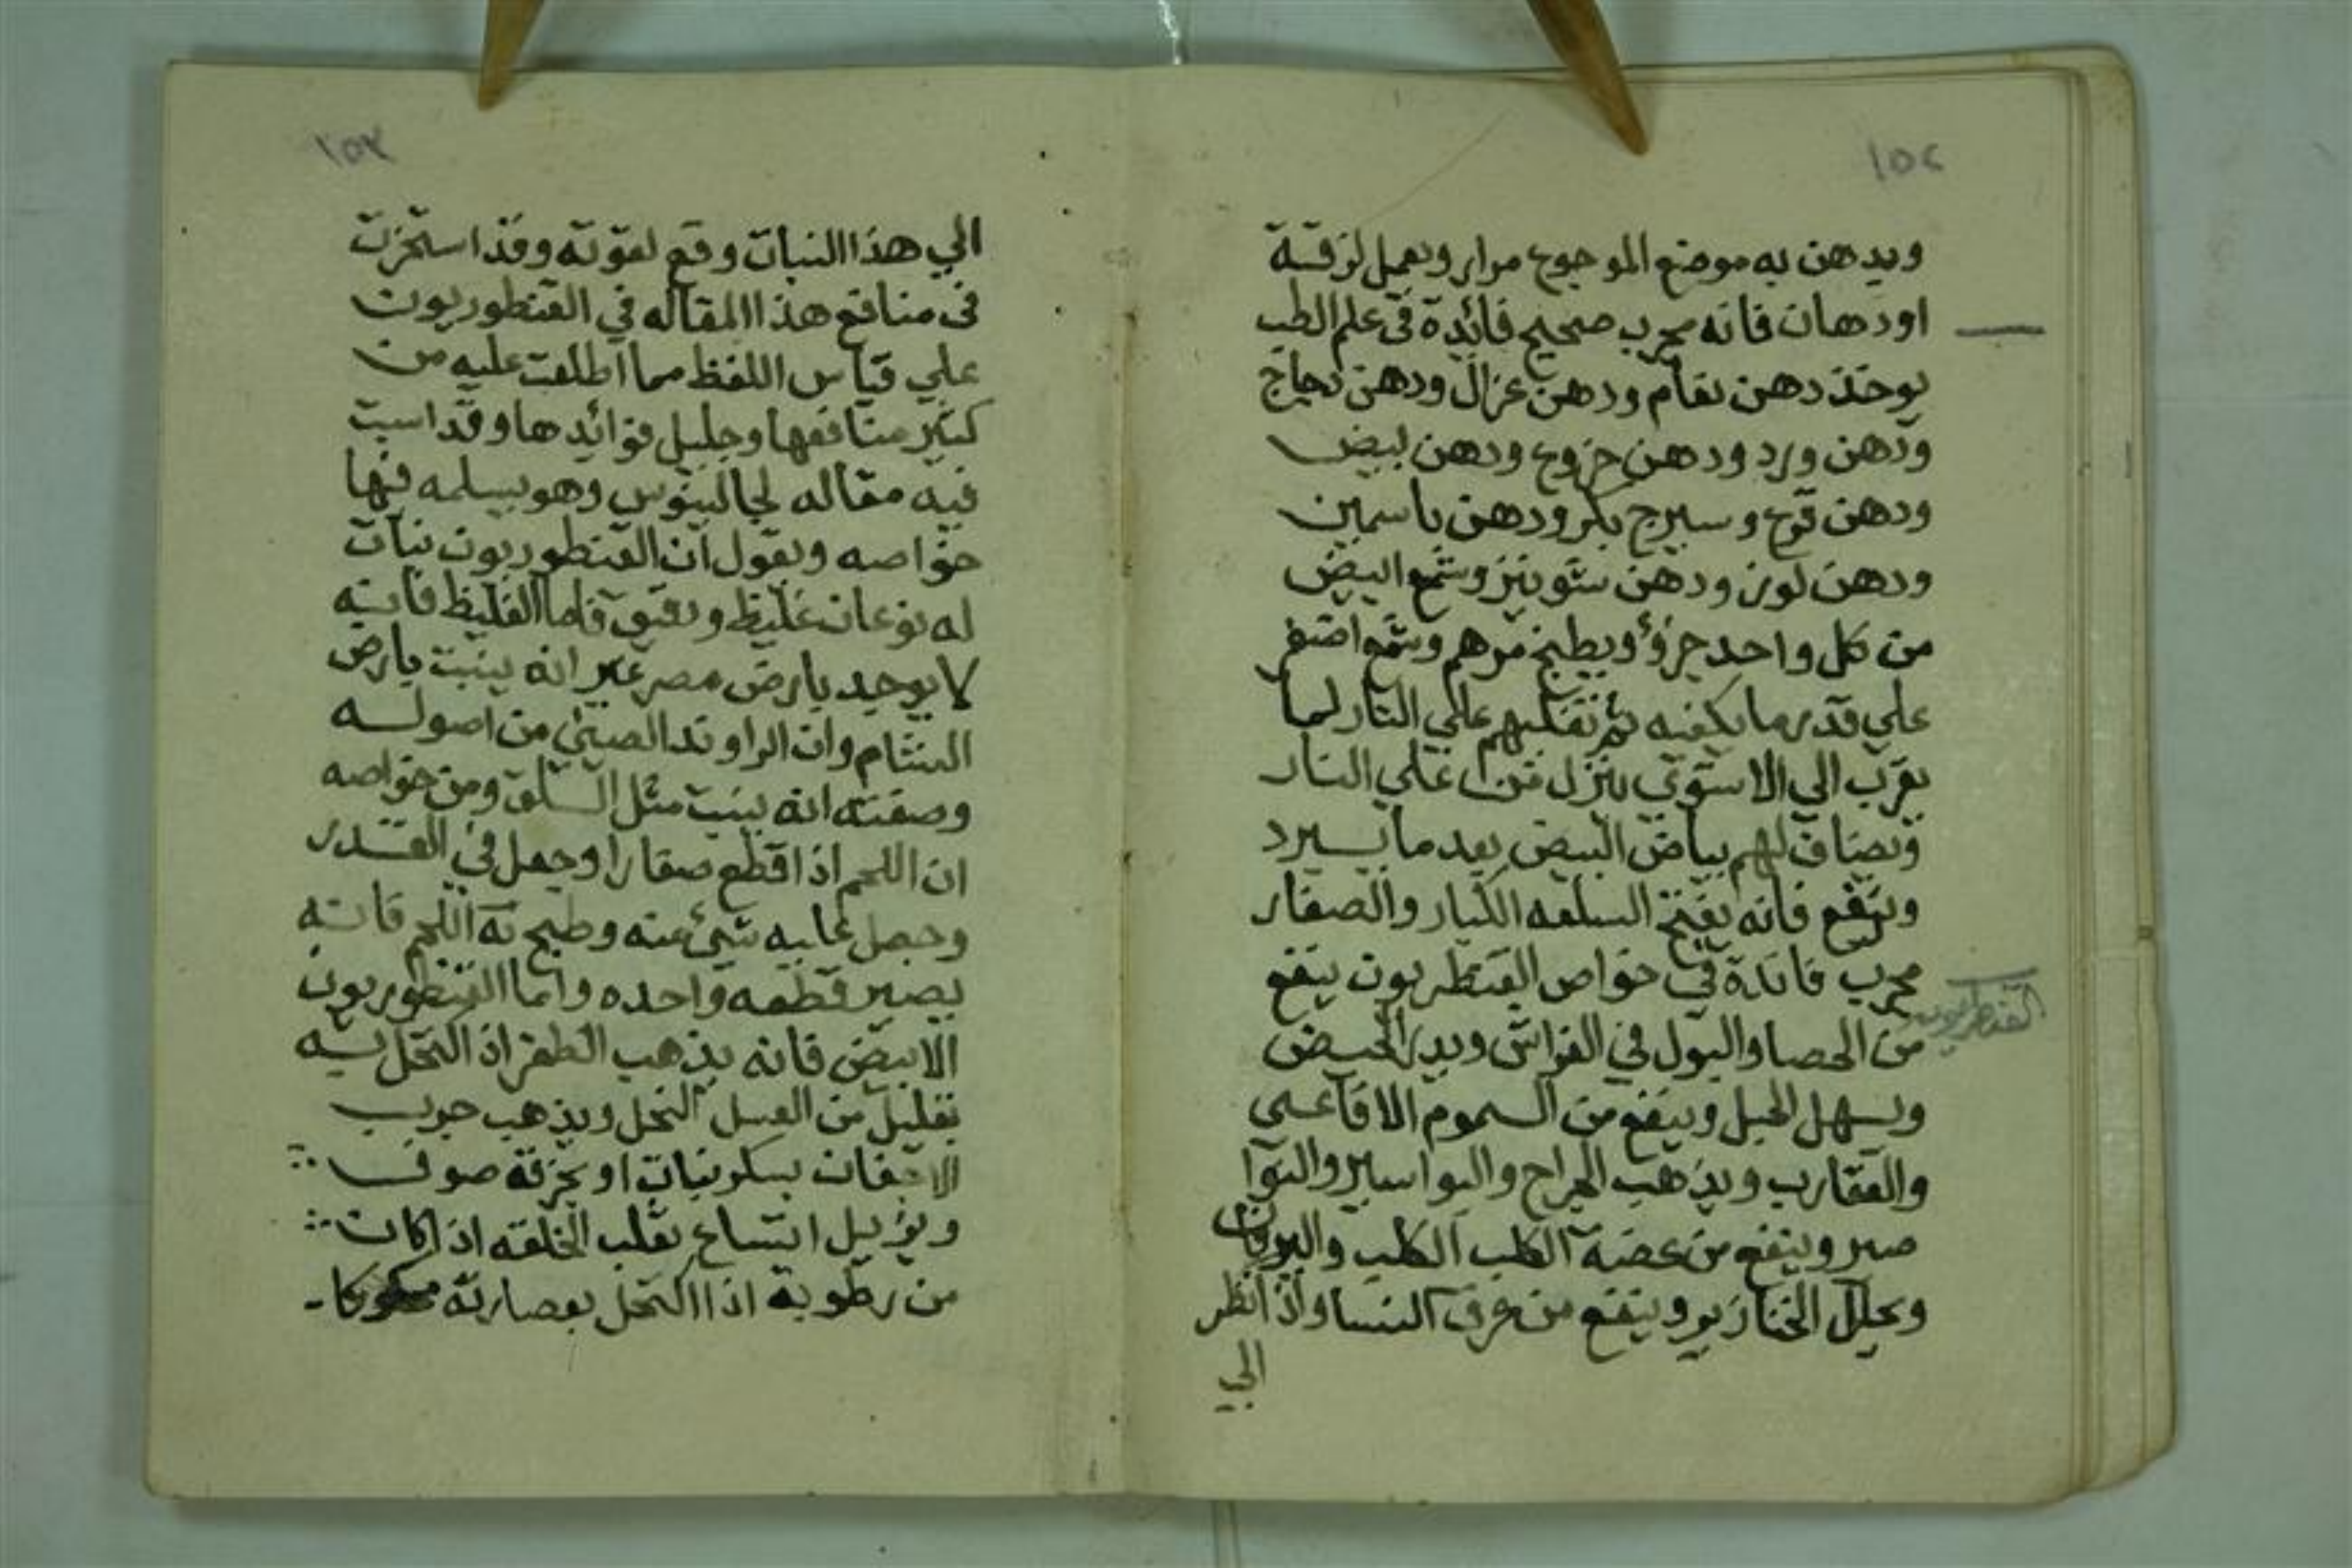 ١٥٢
ويدهن به موضع الموجوع مرار ويعمل لزقة
اودهان فانه مجرب صحيح فائدة في علم الطب
يوخذ دهن نعام ودهن غزال ودهن دجاج
ودهن ورد ودهن خروع ودهن لبيض
ودهن قرع وسيرج بكر ودهن ياسمين
ودهن لوز ودهن شونيز وشمع ابيض
من كل واحد جزؤ ويطبخ مرهم وشمع اصفر
علي قدر ما يكفيه ثم تقلبهم علي النار لما
يقرب الي الاستوي ينزل من علي النار
ويضاف لهم بياض البيض بعد ما يبرد
وينفع فانه يفتح السلعه الكبار والصغار
مجرب فائدة في خواص القنطريون ينفع
القنطريون
من الحصا والبول في الفراش ويدر الحيض
ويسهل الحبل وينفع من السموم الافاعي
والعقارب ويذهب الجراح والبواسير والنوا
صير وينفع من عضة الكلب الكلب واليرقان
ويحلل الخنازير وينفع من عرق النسا واذ انظر
الي
١٥٣
الي هذا النبات وقع لقوته وقد استخرت
في منافع هذا المقاله في القنطوريون
علي قياس اللفظ مما اطلعت عليه من
كبير منافعها وجليل فوائدها وقد اسبت
فيه مقاله لجالينوس وهو يسلمه فيها
خواصه ويقول ان القنطوريون نبات
له نوعان غليظ ودقيق فاما الغليظ فانه
لا يوجد بارض مصر غير انه ينبت بارض
الشام وان الراوند الصيني من اصوله
وصفته انه ينبت مثل السلق ومن خواصه
ان اللحم اذا قطع صغارا وجعل في القدر
وجعل عليه شئ منه وطبخ به اللحم فانه
يصير قطعه واحده واما القنطوريون
الابيض فانه يذهب الظفر اذ اكتحل به
بقليل من العسل النحل ويذهب جرب
الاجفان بسكر نبات او بخرقة صوف
ويزيل اتساع ثقب الخلقه اذا كان
من رطوبة اذا اكتحل بعصارته